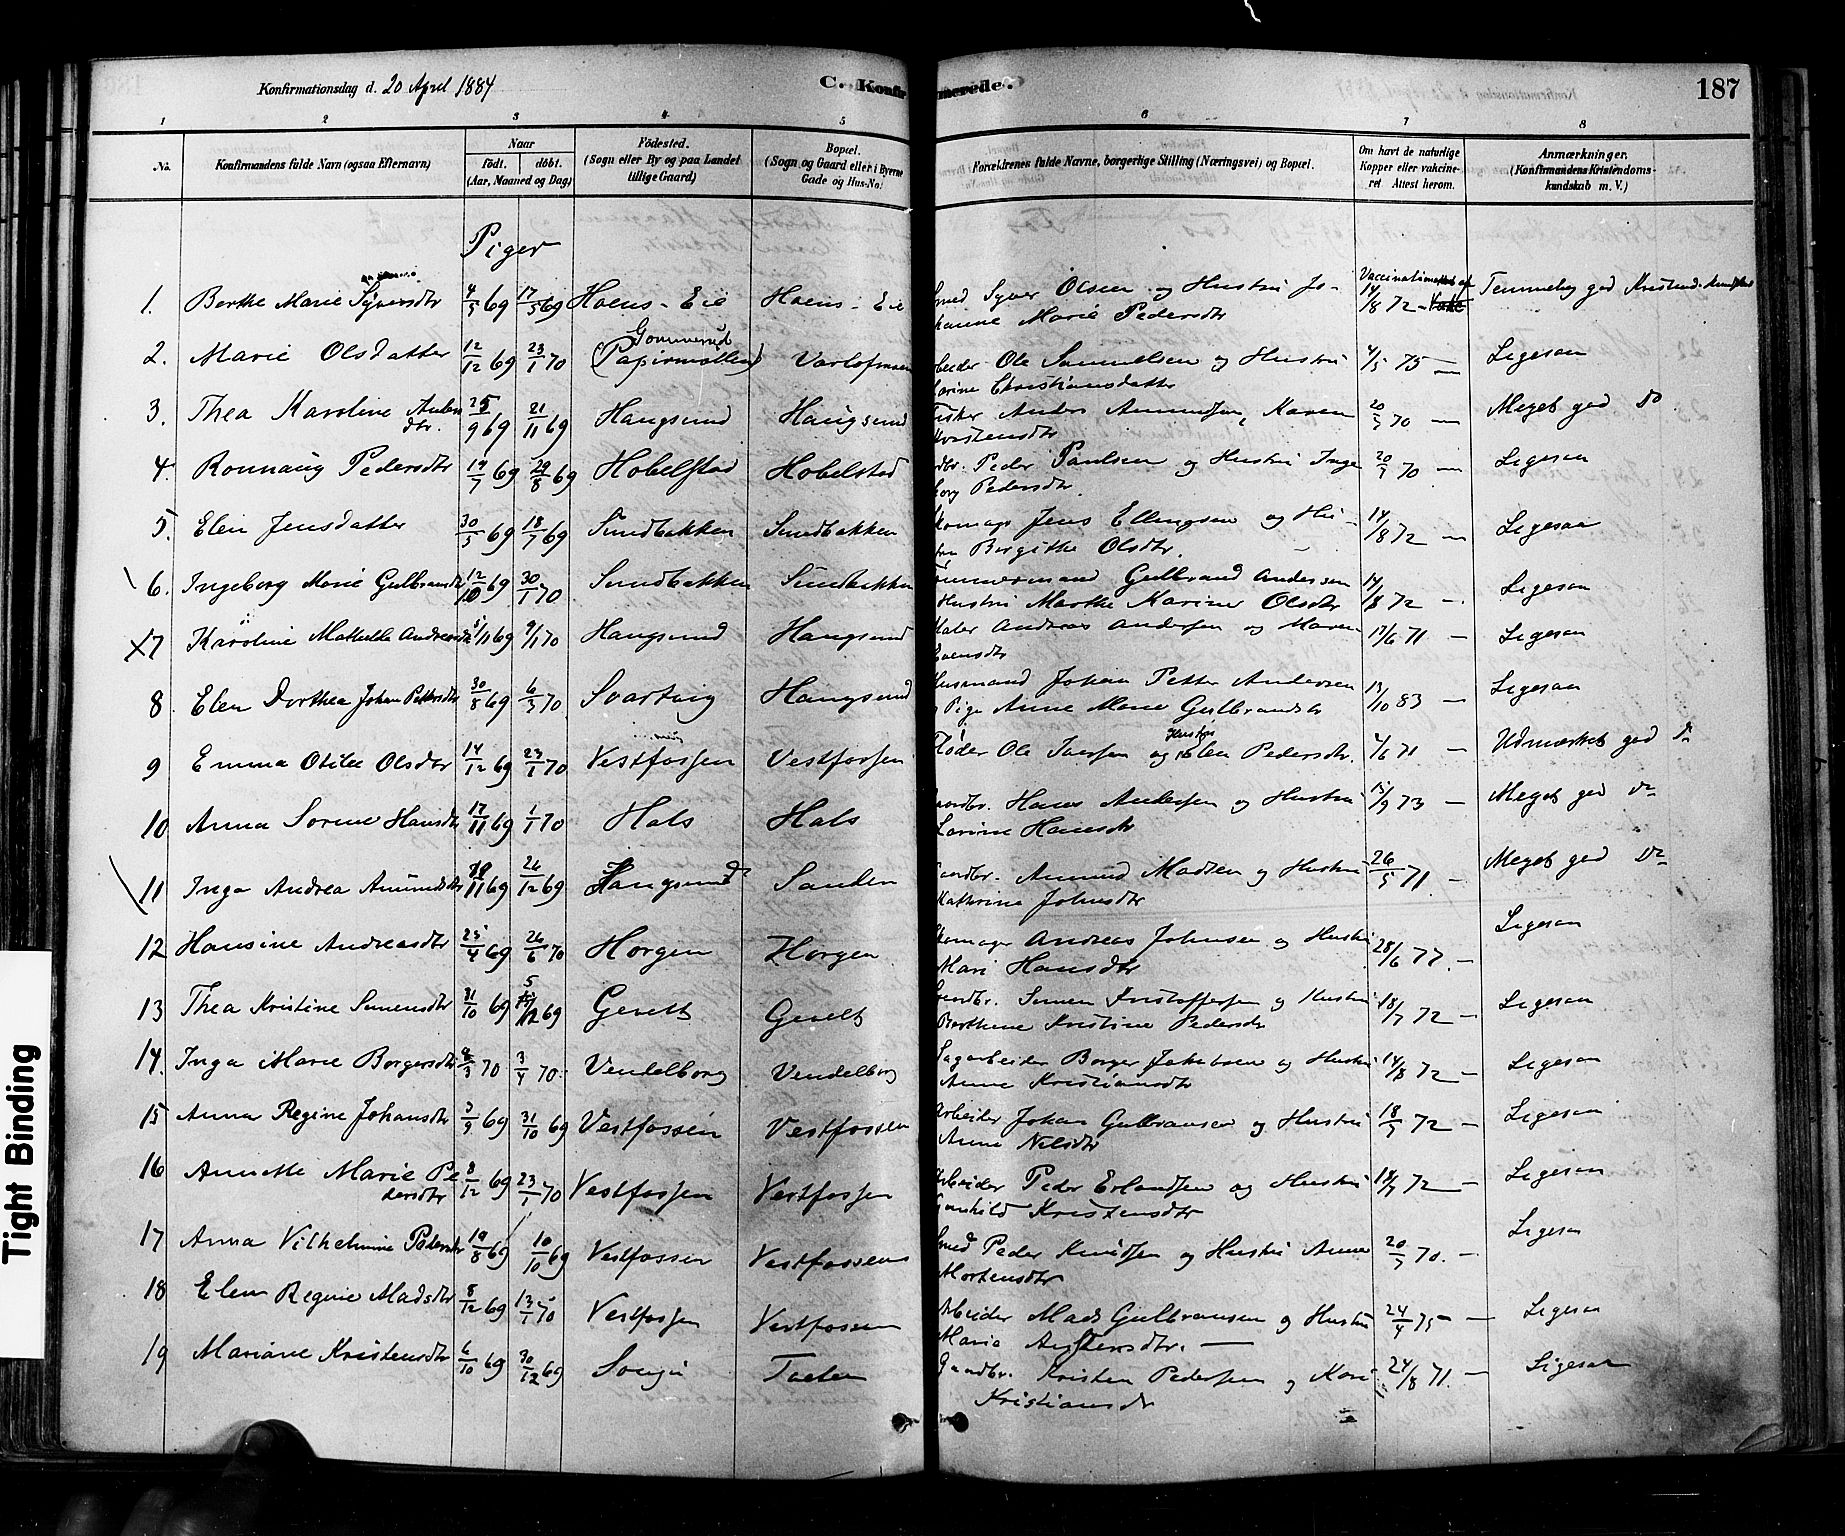 Konfirmationsdag d. 20 April 1884
C. Konfirmerede.
187
1 2 3 4 5 6 7 8
No. Konfirmandens fulde Navn (ogsaa Efternavn) Naar födt. döbt. (Aar, Maaned og Dag) Födested. (Sogn eller By og paa Landet tillige Gaard) Bopæl. (Sogn og Gaard eller i Byerne Gade og Hus-No.) Forældrenes fulde Navne, borgerlige Stilling (Næringsvei) og Bopæl. Om havt de naturlige Kopper eller vakcineret. Attest herom. Anmærkninger. (Konfirmandens Kristendomskundskab m. V.)
Piger
1. Berthe Marie Syversdtr 4/5 69 17/5 69 Hoens-Eie Hoens-Eie Smed Syver Olsen og Hustru Jo-
hanne Marie Pedersdtr 14/8 72 Temmelig god
2. Marie Olsdatter 12/12 69 23/1 70 Gommerud (Papirmøllen) Ole Samuelsen og Hustru 4/5 75 — Ligesaa
Karine Christiansdatter
3. Thea Karoline Anders 25/9 69 21/11 69 Haugsund Haugsund Fisker Anders Amundsen, Karen 20/5 70 — Meget god do
dtr. Kristensdtr
4. Ronnaug Pedersdtr 14/7 69 29/8 69 Hobelstad Hobelstad Peder Paulsen og Hustru Inge 20/7 70 — Ligesaa
borg Pedersdtr.
5. Elen Jensdatter 30/5 69 18/7 69 Sundbakken Sundbakken Skomager Jens Ellingsen og Hu- 14/8 72 — Ligesaa
stru Borgithe Olsdtr.
6. Ingeborg Marie Gulbrandsdtr 12/10 69 30/1 70 Sundbakken Sundbakken Tømmermand Gulbrand Andersen 14/8 72 — Ligesaa
Hustru Marthe Karine Olsdtr
7 Karoline Mathilde Andreasdtr 5/11 69 9/1 70 Haugsund Haugsund Maler Andreas Andersen og Maren 17/6 71 — Ligesaa
Evensdtr
8. Elen Dorthea Johan Pettersdtr 30/8 69 6/3 70 Svartvig Haugsund Husmand Johan Petter Andersen 13/10 83 — Ligesaa
Pige Anne Marie Gulbrandsdtr
9 Emma Otilie Olsdtr 14/12 69 23/1 70 Vestfossen Vestfossen Fløder Ole Iversen og Hustru Elen Pedersdtr. 4/6 71 — Udmærket god do
10 Anna Sorine Hansdtr 17/11 69 1/1 70 Hals Hals Gaardbr. Hans Andersen og Hustru 15/9 73 — Meget god do
Larine Hansdtr
11 Inga Andrea Amundsdtr 11 69 26/12 69 Haugsund Sanden Gaardbr. Amund Madsen og Hustru 26/5 71 — Meget god do
Kathrine Johnsdtr
12 Hansine Andreasdtr 25/4 69 26/6 70 Horgen Horgen Skomager Andreas Johnsen og Hustru 28/6 77. — Ligesaa
Mari Hansdtr
13 Thea Kristine Simensdtr 31/10 69 5/12 69 Gevelt Gevelt Gaardbr. Simen Kristoffersen og Hustru 18/7 72 — Ligesaa
Berthine Kristine Pedersdtr
14. Inga Marie Borgersdtr 3 70 3/4 70. Vendelborg Vendelborg Sagarbeider Borger Jakobsen og Hustru 14/8 72 — Ligesaa
Anne Kristiansdtr
15 Anna Regine Johansdtr 3/9 69 31/10 69 Vestfossen Vestfossen Arbeider Johan Gulbransen og Hustru 18/7 72 — Ligesaa
Anne Nilsdtr
16 Annette Marie Pe 8/12 69 23/1 70 Vestfossen Vestfossen Arbeider Peder Erlandsen og Hustru 18/7 72 — Ligesaa
dersdtr Gunhild Kristensdtr
17 Anna Vilhelmine Pedersdtr 19/8 69 10/10 69 Vestfossen Vestfossen Smed Peder Knudsen og Hustru Anne 20/7 70. — Ligesaa
Mortensdtr
18 Elen Regine Madsdtr 8/12 69 13/1 70 Vestfossen Vestfossen Arbeider Mads Gulbransen og Hustru 24/4 75 — Ligesaa
Maria Andersdtr. —
19 Mariane Kristensdtr 6/10 69 30/12 69 Gaardbr. Kristen Pedersen og Kari 24/8 71. — Ligesaa
Kristiansdtr
Tight Binding